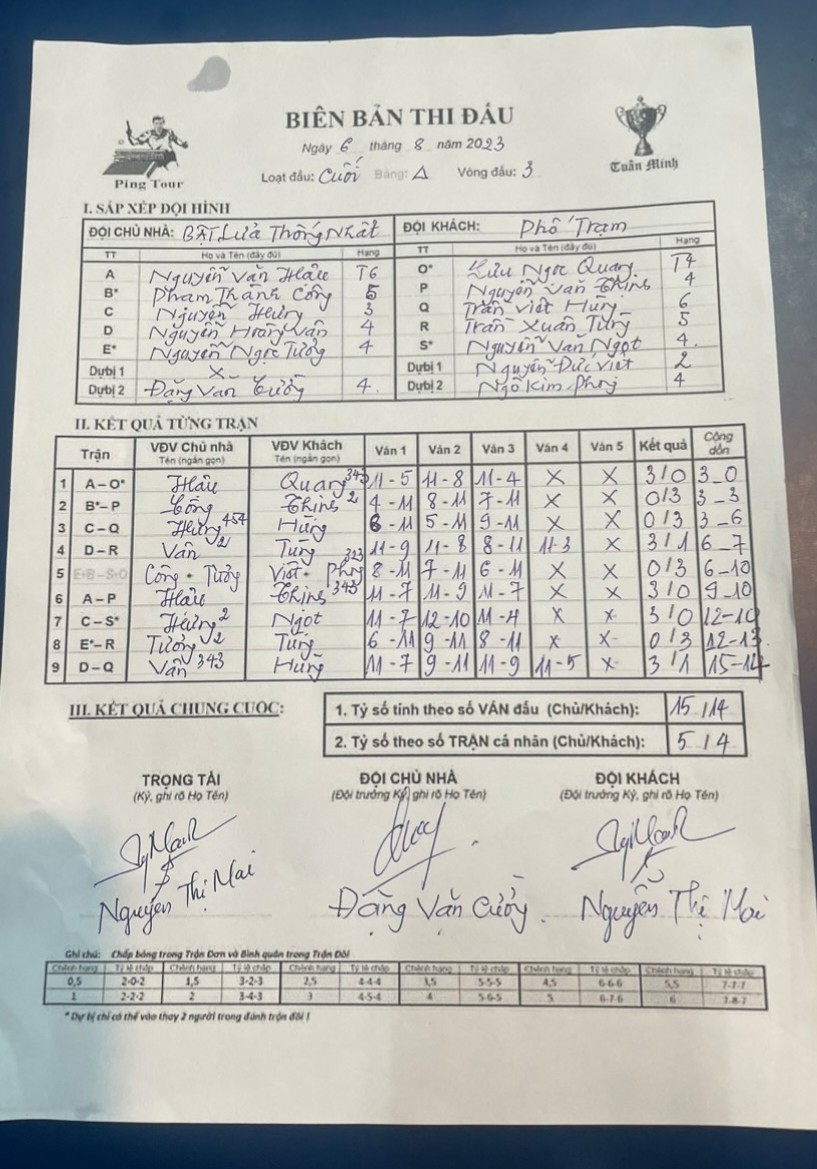 BIÊN BẢN THI ĐẤU
Ping Tour
Tuấn Minh
Ngày 6 tháng 8 năm 2023
Loạt đấu: Cuối Bảng: A Vòng đấu: 3
I. SẮP XẾP ĐỘI HÌNH
ĐỘI CHỦ NHÀ: BẬT Lửa Thống Nhất ĐỘI KHÁCH: Phố Trạm
TT Họ và Tên (đầy đủ) Hạng TT Họ và Tên (đầy đủ) Hạng
A Nguyễn Văn Hậu T6 O* Lưu Ngọc Quang T4
B* Phạm Thành Công 5 P Nguyễn Văn 4
C Nguyễn Hưng 3 Q Trần Việt Hùng 6
D Nguyễn Hoàng Vân 4 R Trần Xuân Tùng 5
E* Nguyễn Ngọc Tưởng 4 S* Nguyễn Văn Ngọt 4
Dự bị 1 X Dự bị 1 Nguyễn Đức Việt 2
Dự bị 2 Đặng Văn Cường 4 Dự bị 2 Ngô Kim Phng 4
II. KẾT QUẢ TỪNG TRẬN
Trận VĐV Chủ nhà Tên (ngắn gọn) VĐV Khách Tên (ngắn gọn) Ván 1 Ván 2 Ván 3 Ván 4 Ván 5 Kết quả Cộng dồn
1 A–O* Hậu Quang 343 11-5 11-8 11-4 X X 3/0 3_0
2 B*–P Công 2 4-11 8-11 7-11 X X 0/3 3_3
3 C–Q Hưng 454 Hùng 6-11 5-11 9-11 X X 0/3 3-6
4 D–R Vân 2 Tùng 11-9 11-8 8-11 11-3 X 3/1 6-7
5 E+B–S+O Công + Tưởng Việt + Phng 323 8-11 7-11 6-11 X X 0/3 6-10
6 A–P Hậu 343 11-7 11-9 11-7 X X 3/0 9-10
7 C–S* Hưng 2 Ngọt 11-7 12-10 11-4 X X 3/0 12-10
8 E*–R Tưởng 2 Tùng 6-11 9-11 8-11 X X 0/3 12-13
9 D–Q Vân 343 Hùng 11-7 9-11 11-9 11-5 X 3/1 15-14
III. KẾT QUẢ CHUNG CUỘC:
1. Tỷ số tính theo số VÁN đấu (Chủ/Khách): 15/14
2. Tỷ số theo số TRẬN cá nhân (Chủ/Khách): 5/4
TRỌNG TÀI ĐỘI CHỦ NHÀ ĐỘI KHÁCH
(Ký, ghi rõ Họ Tên) (Đội trưởng Ký, ghi rõ Họ Tên) (Đội trưởng Ký, ghi rõ Họ Tên)
Nguyễn Thị Mai Đặng Văn Cường Nguyễn Thị Mai
Ghi chú: Chấp bóng trong Trận Đơn và Bình quân trong Trận Đôi
Chênh hạng Tỷ lệ chấp Chênh hạng Tỷ lệ chấp Chênh hạng Tỷ lệ chấp Chênh hạng Tỷ lệ chấp Chênh hạng Tỷ lệ chấp Chênh hạng Tỷ lệ chấp
0,5 2-0-2 1,5 3-2-3 2,5 4-4-4 3,5 5-5-5 4,5 6-6-6 5,5 7-7-7
1 2-2-2 2 3-4-3 3 4-5-4 4 5-6-5 5 6-7-6 6 7-8-7
* Dự bị chỉ có thể vào thay 2 người trong đánh trận đôi !